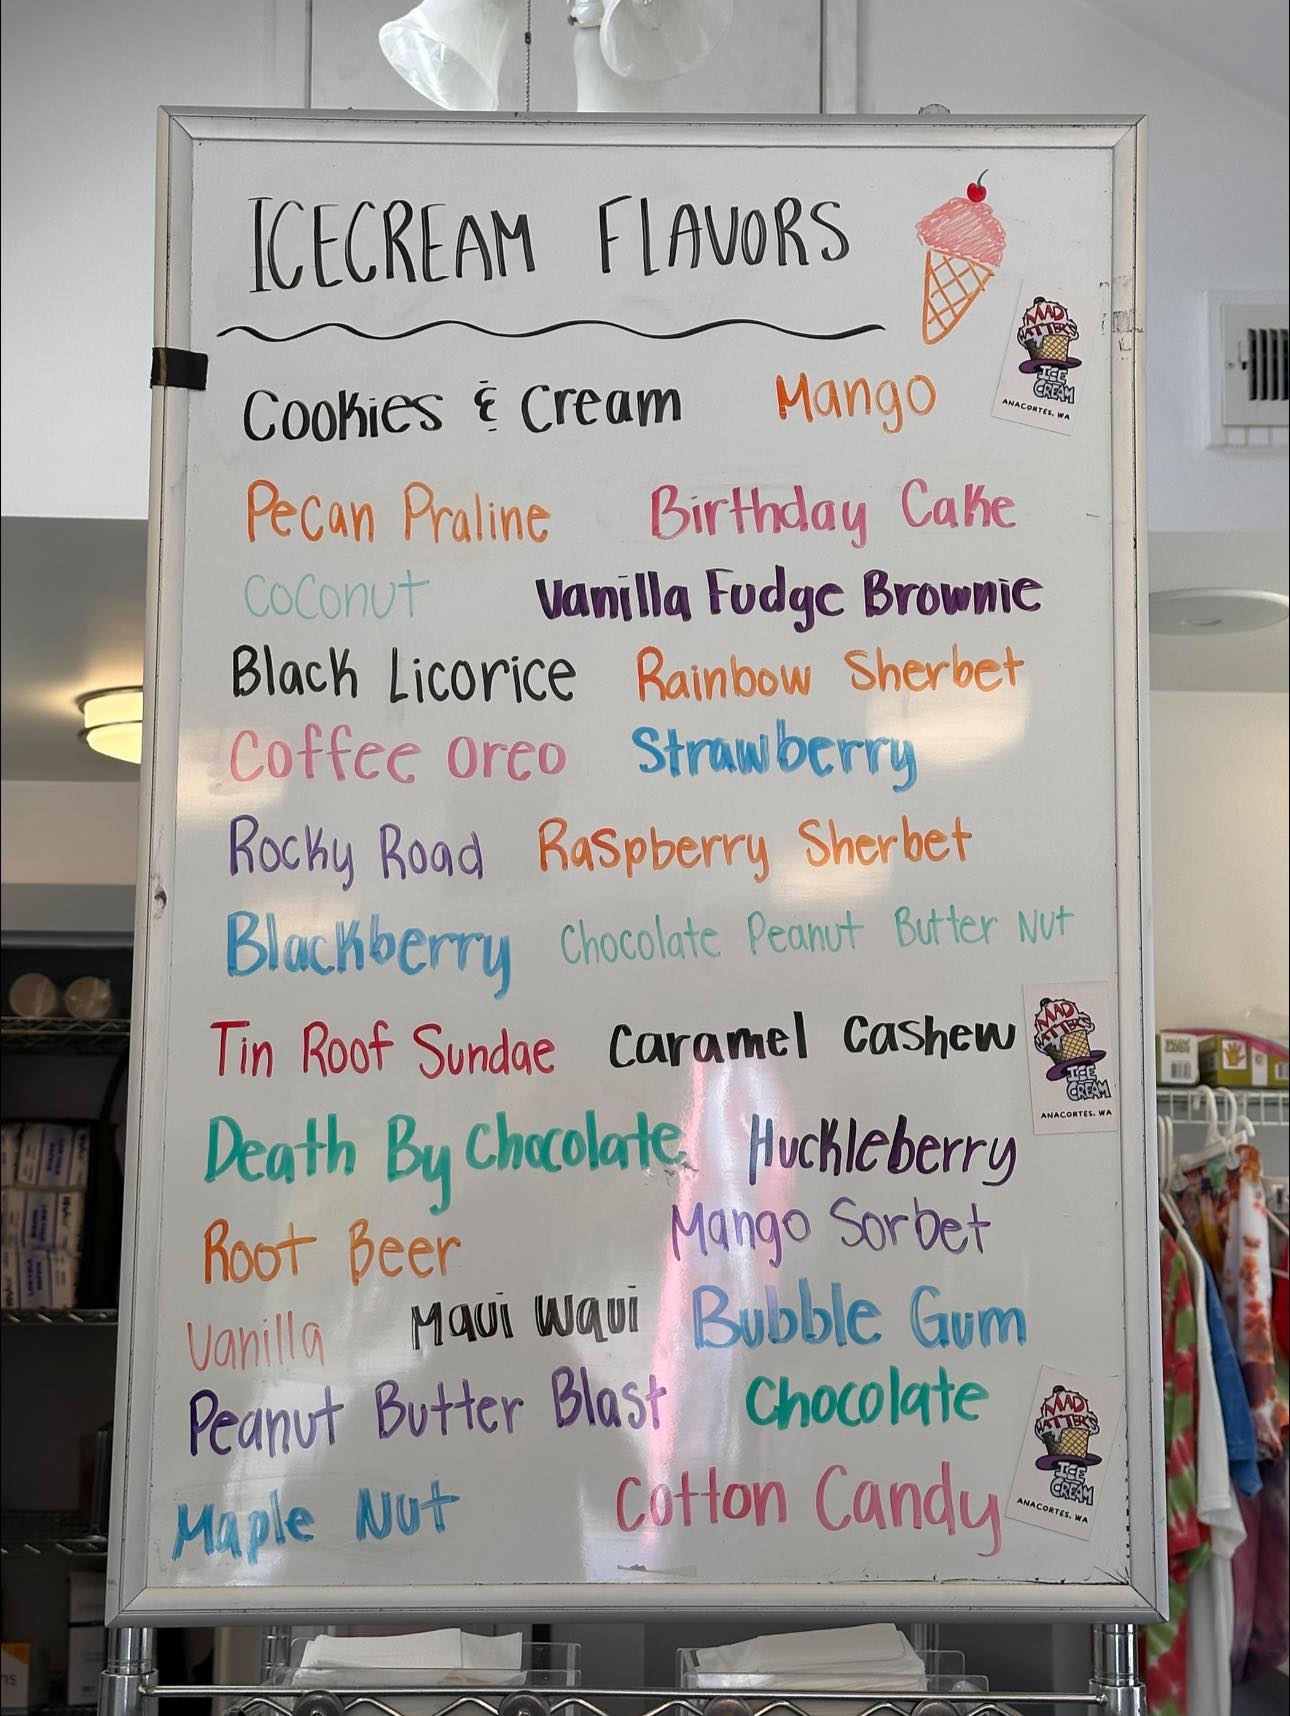 ICECREAM FLAVORS
MAD HATTER'S ICE CREAM
ANACORTES, WA
Cookies & Cream Mango
Pecan Praline Birthday Cake
Coconut Vanilla Fudge Brownie
Black Licorice Rainbow Sherbet
Coffee Oreo Strawberry
Rocky Road Raspberry Sherbet
Blackberry Chocolate Peanut Butter Nut
Tin Roof Sundae Caramel Cashew
MAD HATTER'S ICE CREAM
ANACORTES, WA
Death By Chocolate Huckleberry
Root Beer Mango Sorbet
Vanilla Maui Waui Bubble Gum
Peanut Butter Blast Chocolate
MAD HATTER'S ICE CREAM
ANACORTES, WA
Maple Nut Cotton Candy